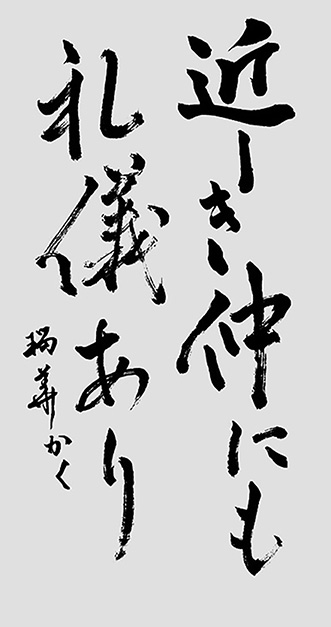 近しき仲にも
礼儀あり
瑞華かく